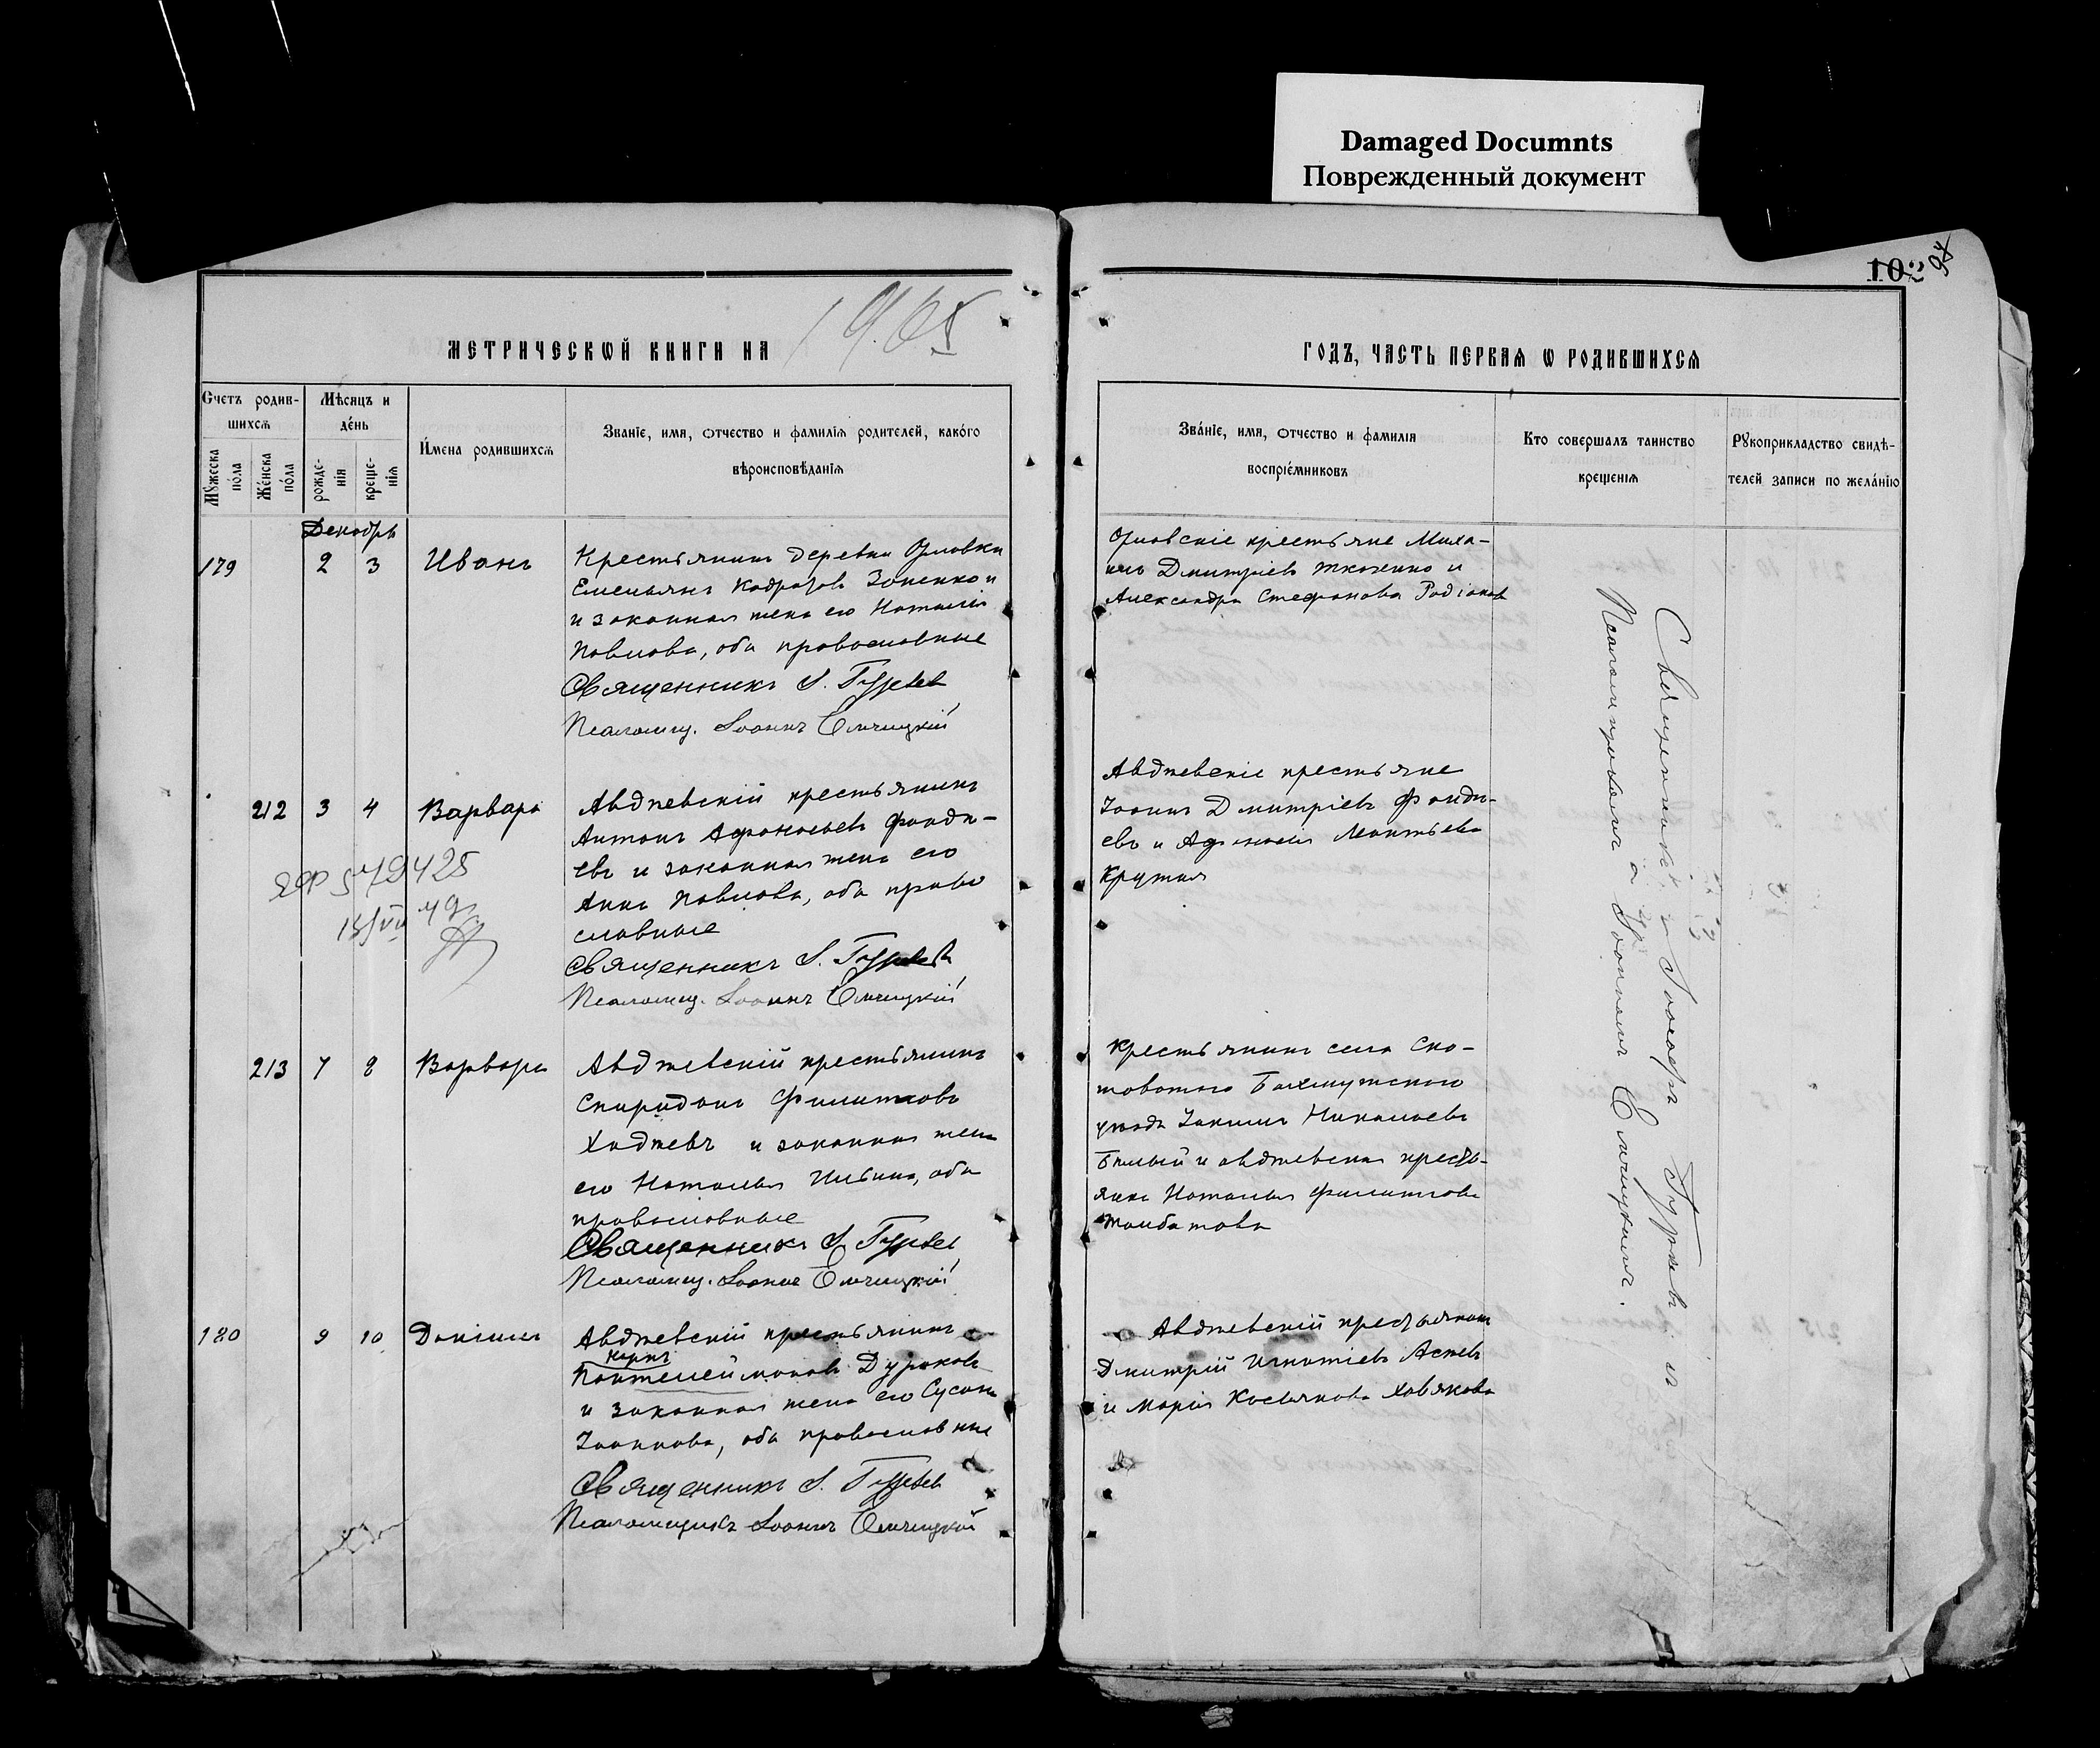 Damaged Documnts
Поврежденный документ
102
94
МЕТРИЧЕСКѠЙ КНИГИ НА 1905
ГОДЪ, ЧАСТЬ ПЕРВАѦ Ѡ РОДИВШИХСѦ
Счетъ родив-
шихсѧ
Мꙋжеска по́ла
Же́нска по́ла
Мѣсяцъ и
де́нь
рожде-
нїя
креще-
нїѧ
И́мена родившихсѧ
Званїе, имя, ѻтчество и фамилїѧ родителей, како́го
вѣроисповѣ́данїѧ
Зва́нїе, имя, ѻтчество и фамилїѧ
воспрїе́мниковъ
Кто совершалъ таинство
крещенїѧ
Рꙋкоприкладство свидѣ-
телей записи по жела́нїю
Декабрь
179
2
3
Иванъ
Крестьянинъ деревни Орловки
Емельянъ
и законная жена его Наталія
Павлова, оба православные
Священникъ І. Гурьевъ
Псаломщ. Іоаннъ
Орловскіе крестьяне Миха-
илъ Дмитріевъ Ткаченко и
Александра Стефанова
212
3
4
Варвара
Авдѣевскій крестьянинъ
Антонъ Афанасьевъ
евъ и законная жена его
Анна Павлова, оба право
славные
Священникъ І. Гурьевъ
Псаломщ. Іоаннъ
Авдѣевскіе крестьяне
Іоаннъ Дмитріевъ
евъ и Афанасія Леонтьева
Крутая
579425
49
213
7
8
Варвара
Авдѣевскій крестьянинъ
Спиридонъ Филипповъ
Хаджевъ и законная жена
его Наталья Ильина, оба
православные
Священникъ І. Гурьевъ
Псаломщ. Іоаннъ
Крестьянинъ села Ско-
товатого Бахмутского
уѣзда Іакимъ Николаевъ
Бѣлый и авдѣевская кресть-
янка Наталья Филиппова
180
9
10
Даніилъ
Авдѣевскій крестьянинъ
Карпъ
Пантелеймоновъ Дураковъ
и законная жена его Сусана
Іоаннова, оба православные
Священникъ І. Гурьевъ
Псаломщикъ Іоаннъ
Авдѣевскій крестьянинъ
Дмитрій Игнатіевъ
и Марія Касьянова
Священникъ Гурьевъ съ
Псаломщикомъ Іоанномъ